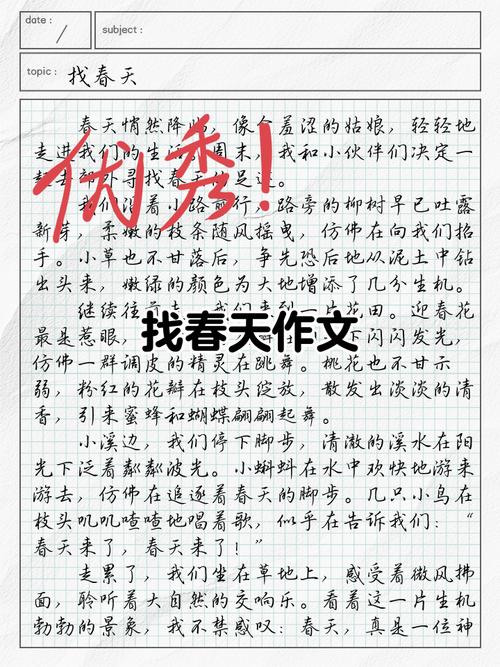 date :
subject :
topic : 找春天
春天悄然降临，像个羞涩的姑娘，轻轻地
走进我们的生活。周末，我和小伙伴们决定一
起去郊外寻找春天的足迹。
优秀！
我们沿着小路前行，路旁的柳树早已吐露
新芽，柔嫩的枝条随风摇曳，仿佛在向我们招
手。小草也不甘落后，争先恐后地从泥土中钻
出头来，嫩绿的颜色为大地增添了几分生机。
继续往前走，我们来到一片花田。迎春花
找春天作文
最是惹眼，下闪闪发光，
仿佛一群调皮的精灵在跳舞。桃花也不甘示
弱，粉红的花瓣在枝头绽放，散发出淡淡的清
香，引来蜜蜂和蝴蝶翩翩起舞。
小溪边，我们停下脚步，清澈的溪水在阳
光下泛着粼粼波光。小蝌蚪在水中欢快地游来
游去，仿佛在追逐着春天的脚步。几只小鸟在
枝头叽叽喳喳地唱着歌，似乎在告诉我们：“
春天来了，春天来了！”
走累了，我们坐在草地上，感受着微风拂
面，聆听着大自然的交响乐。看着这一片生机
勃勃的景象，我不禁感叹：春天，真是一位神